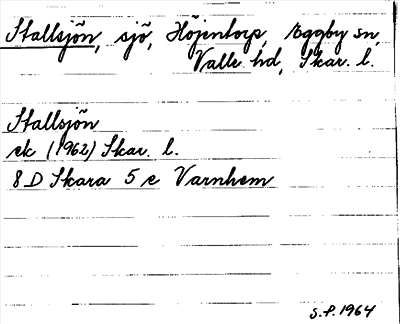 Stallsjön, sjö, Höjentorp, Eggby sn,
Valle hd, Skar. l.
Stallsjön
ek (1962) Skar. l.
8 D Skara 5 e Varnhem
S.P. 1964